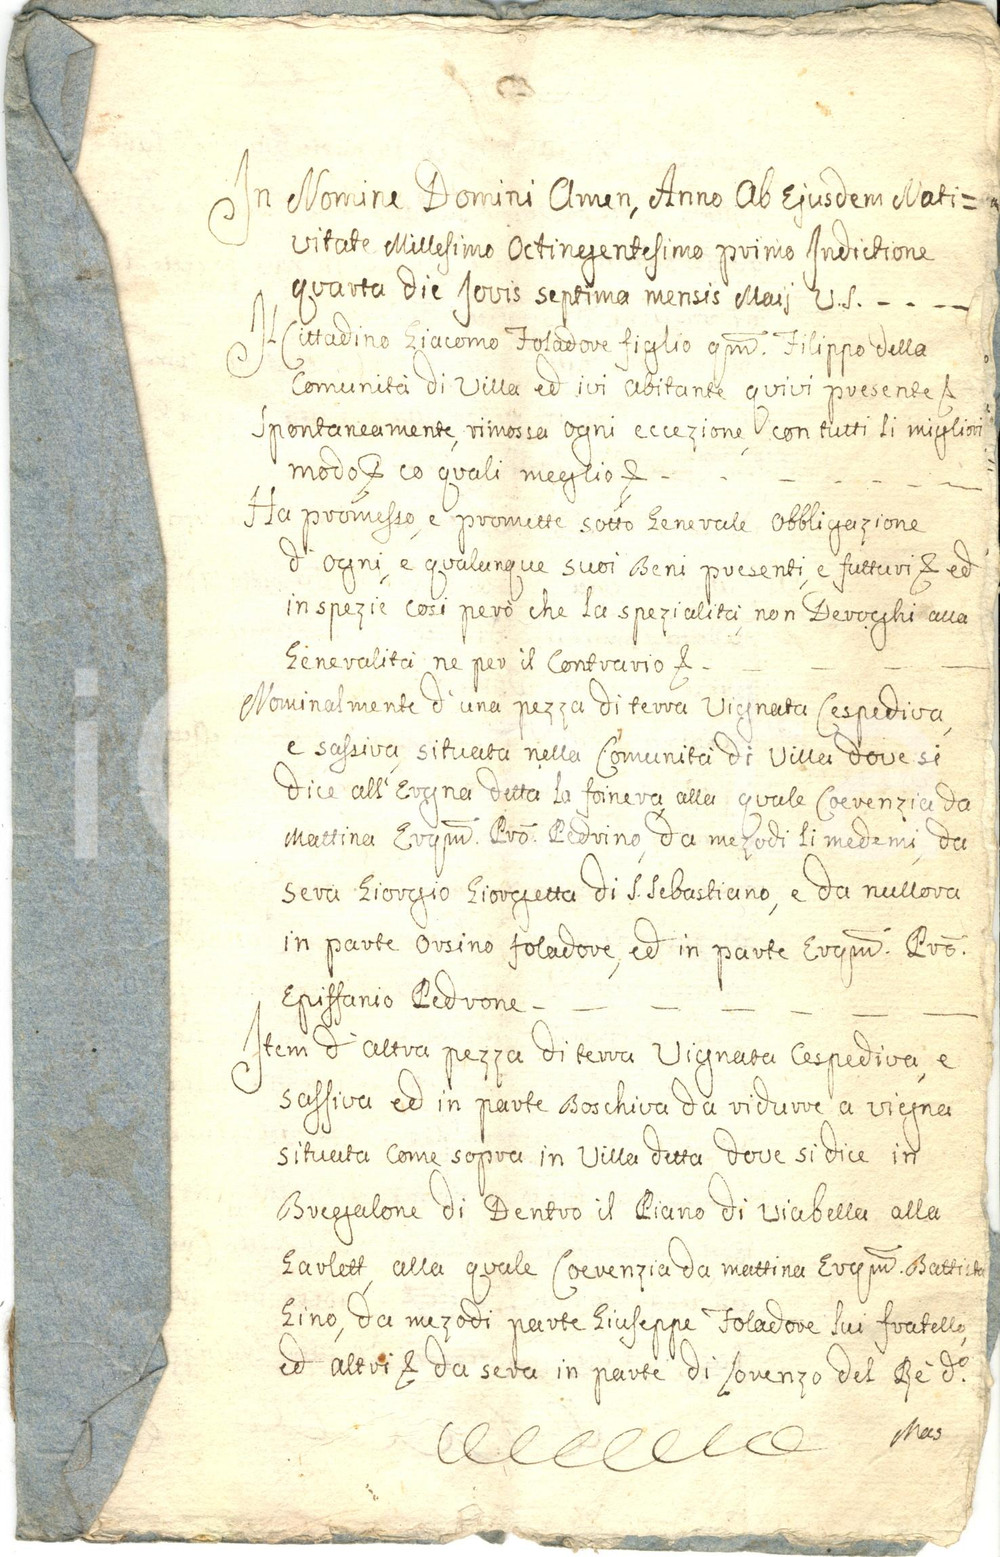 In Nomine Domini Amen, Anno Ab Ejusdem Nati=
vitate Millesimo Octingentesimo primo Indictione
quarta die Jovis septima mensis Maij V.S. - - - -
Il Cittadino Giacomo Foladore figlio qm̃. Filippo della
Comunità di Villa ed ivi abitante quivi presente &
Spontaneamente, rimossa ogni eccezione, con tutti li migliori
modo & co quali meglio & - - - - - -
Ha promesso, e promette sotto Generale obbligazione
d' ogni, e qualunque suoi Beni presenti, e futturi & ed
in spezie così però che la spezialità, non Deroghi alla
Generalità ne per il Contrario & - - - - -
Nominalmente d' una pezza di terra Vignata Cespediva,
e sassiva, situata nella Comunità di Villa dove si
dice all' Ergna detta la foinera, alla quale Coerenzia da
Mattina Erqm̃. Pro. Pedrino, da mezodi li medemi, da
sera Giorgio Giorgetta di S. Sebastiano, e da nullora
in parte Orsino foladore, ed in parte Erqm̃. Pro.
Epiffanio Pedrone - - - - - - -
Item d' altra pezza di terra Vignata Cespediva, e
sassiva ed in parte Boschiva da ridurre a vigna
situata Come sopra in Villa detta dove si dice in
Bregalone di Dentro il Piano di Viabella alla
Garlett, alla quale Coerenzia da mattina Erqm̃. Battista
Gino, da mezodi parte Giuseppe Foladore lui fratello,
ed altri & da sera in parte di Lorenzo del Rè d.º
Mas